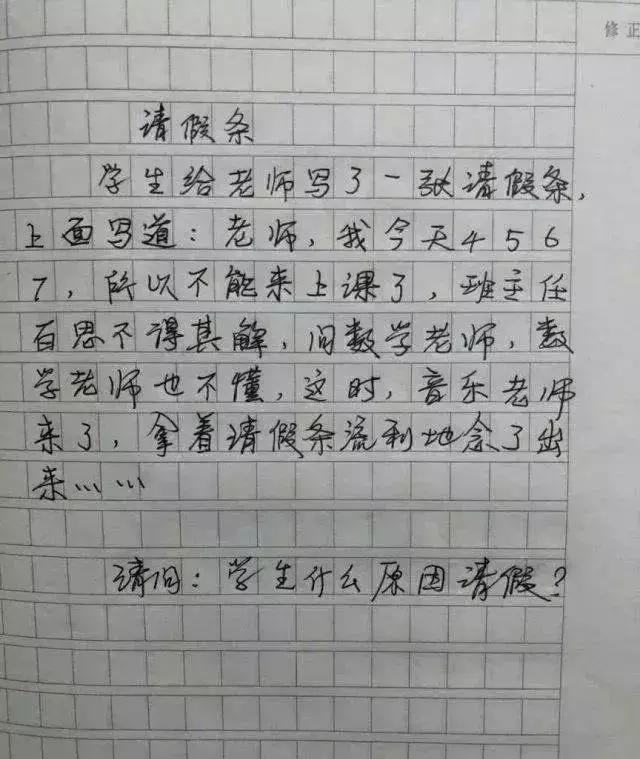 修正
请假条
学生给老师写了一张请假条，
上面写道：老师，我今天4 5 6
7，所以不能来上课了，班主任
百思不得其解，问数学老师，数
学老师也不懂，这时，音乐老师
来了，拿着请假条流利地念了出
来……
请问：学生什么原因请假？